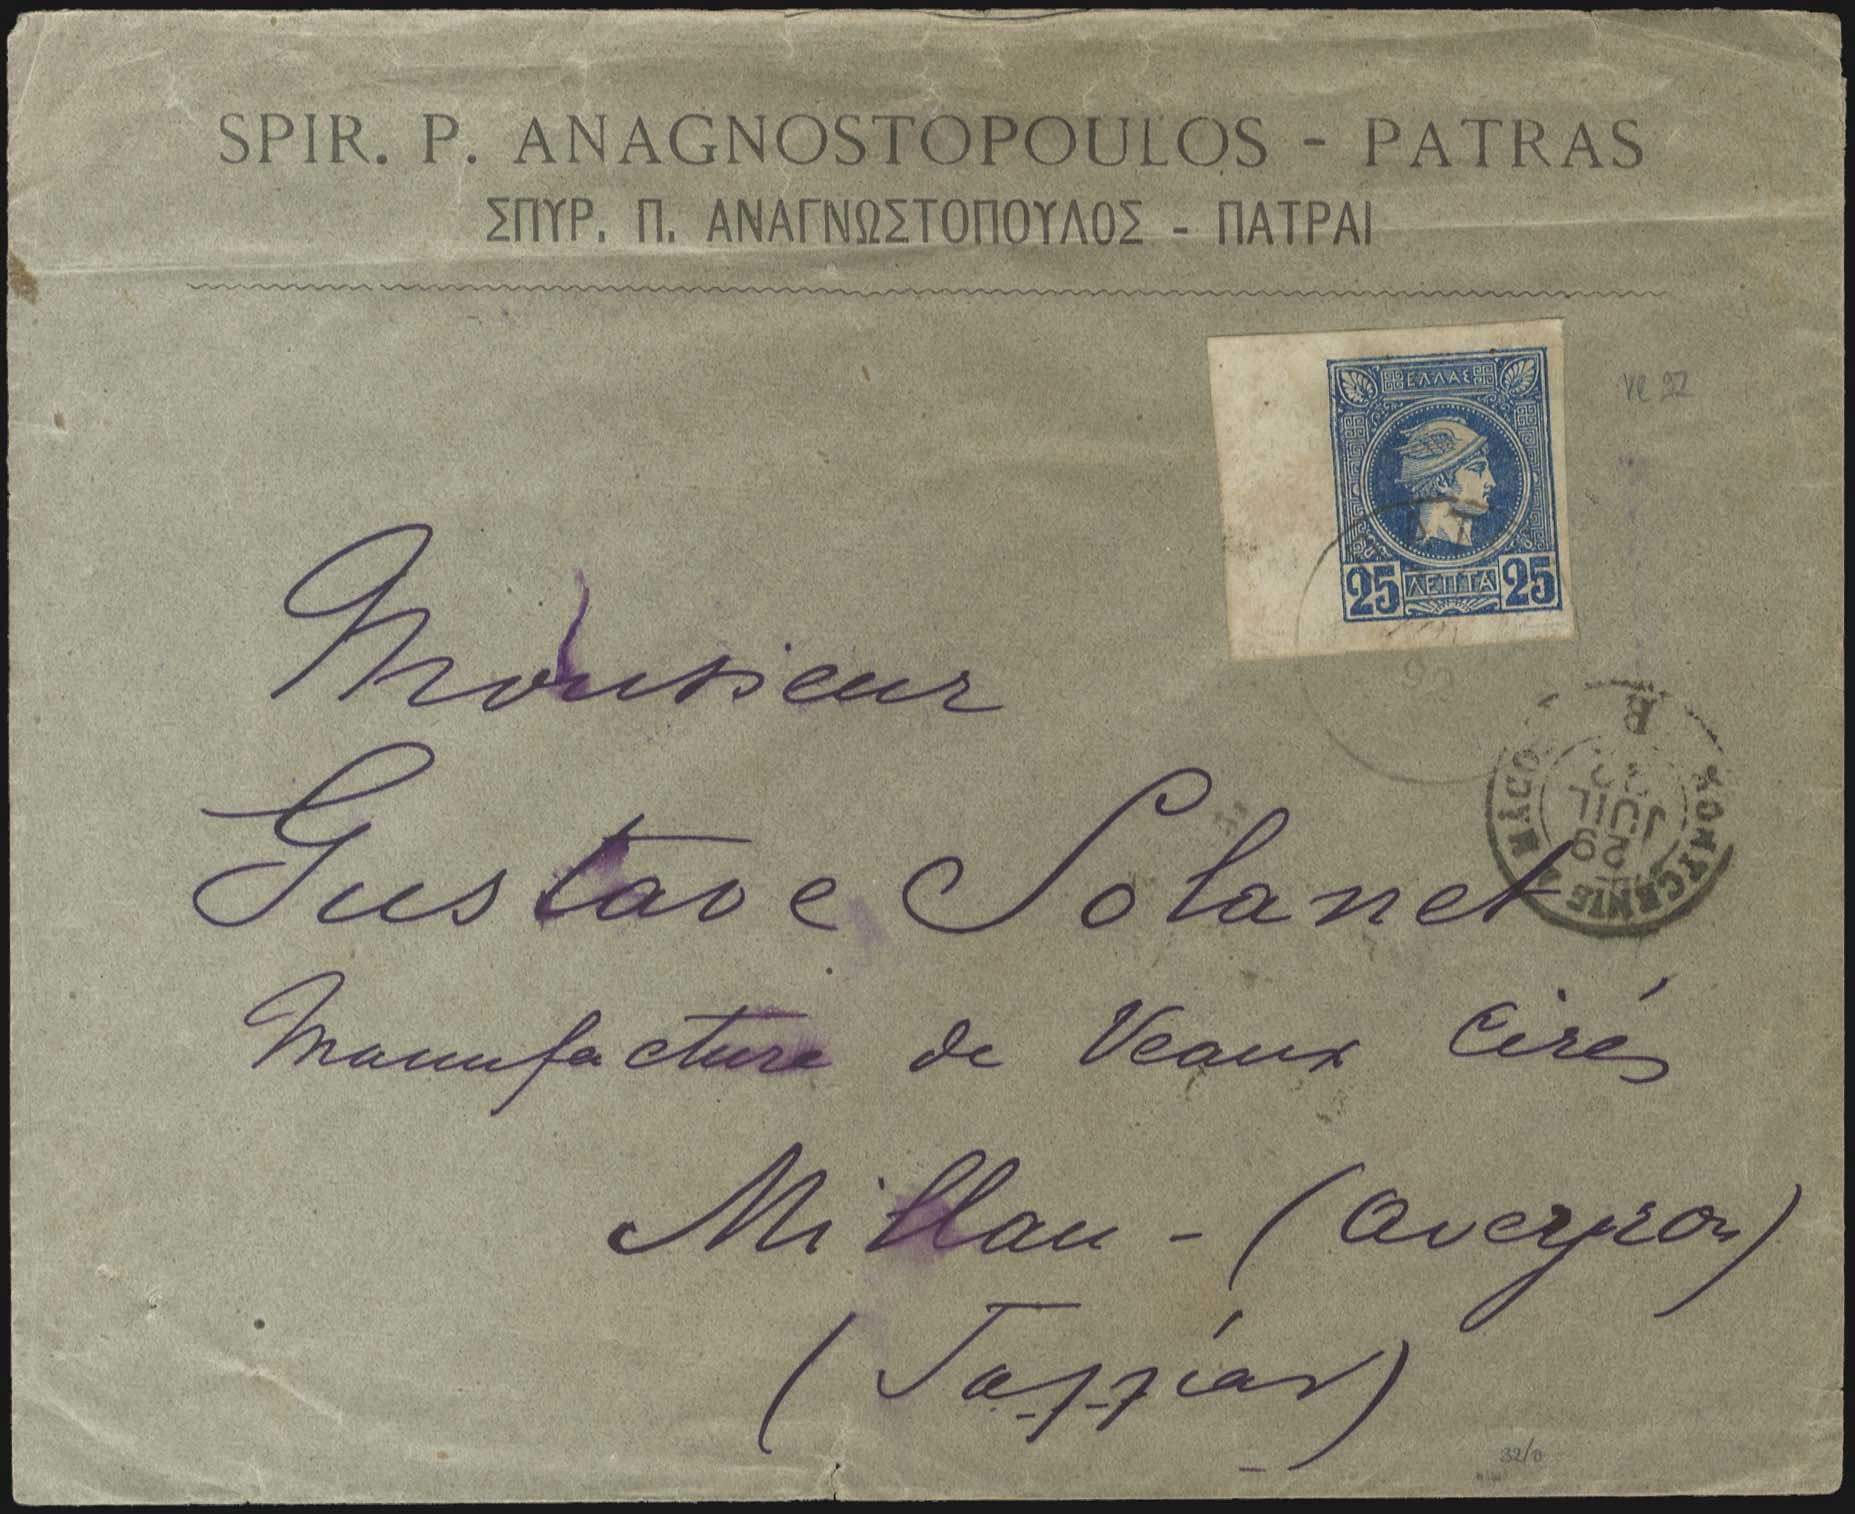 SPIR. P. ANAGNOSTOPOULOS - PATRAS
ΣΠΥΡ. Π. ΑΝΑΓΝΩΣΤΟΠΟΥΛΟΣ - ΠΑΤΡΑΙ
ΕΛΛΑΣ
25 ΛΕΠΤΑ 25
Monsieur
Gustave Solanet
Manufacture de Veaux Cirés
Millau - (Aveyron)
(Γαλλίαν)
MODANE
B
29
JUIL
32/0